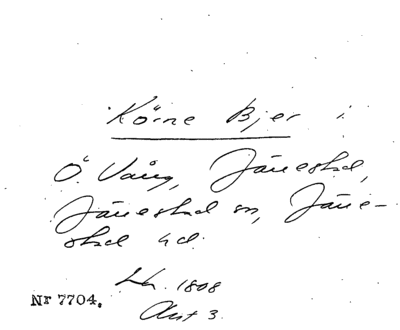 Körne Bjer i
Ö. Vång, Jänestad,
Jänestad sn, Jäne-
stad hd.
Lh. 1808
Akt 3.
Nr 7704.